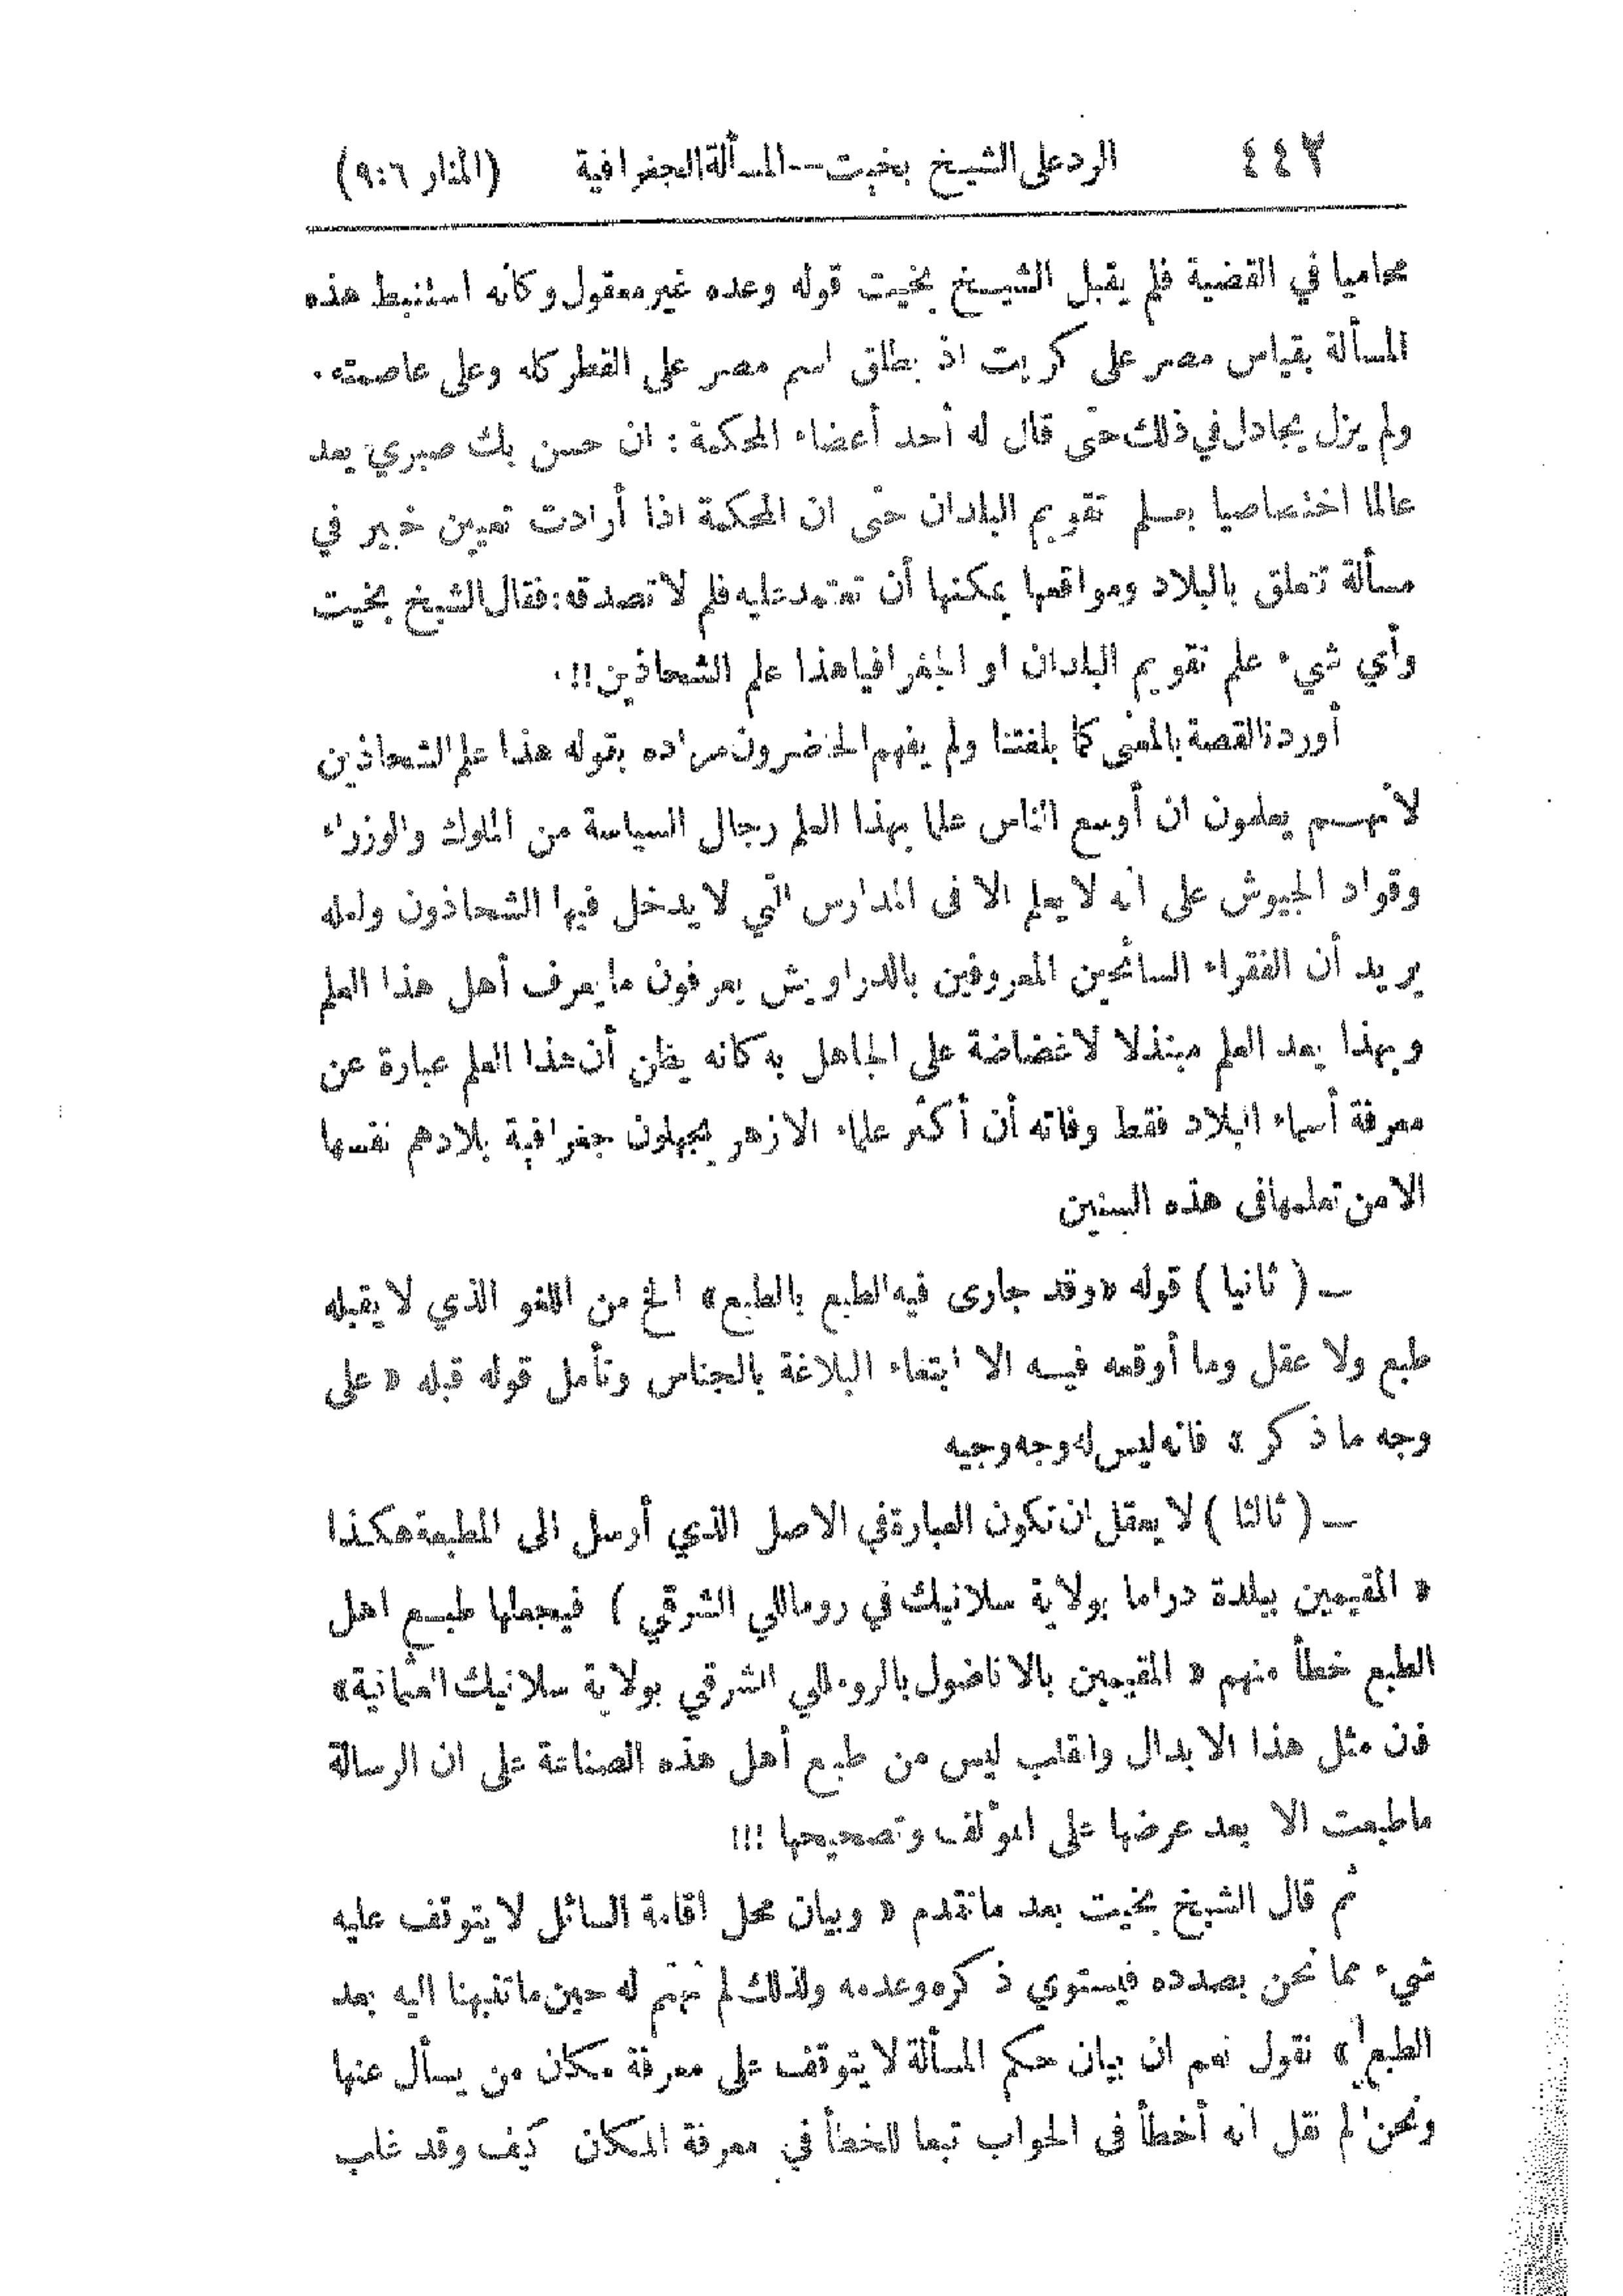 ٤٤٢ الرد على الشيخ بخيت--المسألة الجغرافية (المنار ٩:٦)
محاميا في القضية فلم يقبل الشيخ بخيت قوله وعده غير معقول وكأنه استنبط هذه
المسألة بقياس مصر على كريت اذ يطلق اسم مصر على القطر كله وعلى عاصمته.
ولم يزل يجادل في ذلك حتى قال له أحد أعضاء المحكمة : ان حسن بك صبري يعد
عالما اختصاصيا بعلم تقويم البلدان حتى ان المحكمة اذا أرادت تعيين خبير في
مسألة تتعلق بالبلاد ومواقعها يمكنها أن تعتمد عليه فلم لا تصدقه: فقال الشيخ بخيت
وأي شيء علم تقويم البلدان او الجغرافيا هذا علم الشحاذين!!.
أوردنا القصة بالمعنى كما بلغتنا ولم يفهم الحاضرون مراده بقوله هذا علم الشحاذين
لأنهم يعلمون ان أوسع الناس علما بهذا العلم رجال السياسة من الملوك والوزراء
وقواد الجيوش على انه لا يعلم الا في المدارس التي لا يدخل فيها الشحاذون ولعله
يريد أن الفقراء السائحين المعروفين بالدراويش يعرفون ما يعرف أهل هذا العلم
وبهذا يعد العلم مبتذلا لا غضاضة على الجاهل به كانه يظن أن هذا العلم عبارة عن
معرفة أسماء البلاد فقط وفاته أن أكثر علماء الازهر يجهلون جغرافية بلادهم نفسها
الا من تعلمها في هذه السنين
ــ ( ثانيا ) قوله «وقد جارى فيه الطبع بالطبع» الخ من اللغو الذي لا يقبله
طبع ولا عقل وما أوقعه فيه الا ابتغاء البلاغة بالجناس وتأمل قوله قبله « على
وجه ما ذكر » فانه ليس له وجه وجيه
ــ ( ثالثا ) لا يعقل ان تكون العبارة في الاصل الذي أرسل الى المطبعة هكذا
« المقيمين ببلدة دراما بولاية سلانيك في روماللي الشرقي ) فيجعلها طبع اهل
الطبع خطأ منهم « المقيمين بالاناضول بالروملي الشرقي بولاية سلانيك العثمانية»
فان مثل هذا الابدال والقلب ليس من طبع أهل هذه الصناعة على ان الرسالة
ما طبعت الا بعد عرضها على المؤلف وتصحيحها !!!
ثم قال الشيخ بخيت بعد ما تقدم « وبيان محل اقامة السائل لا يتوقف عليه
شيء مما نحن بصدده فيستوي ذكره وعدمه ولذلك لم نهتم له حين ما تنبهنا اليه بعد
الطبع » نقول نعم ان بيان حكم المسألة لا يتوقف على معرفة مكان من يسأل عنها
ونحن لم نقل انه أخطأ في الجواب تبعا للخطأ في معرفة المكان كيف وقد غلب